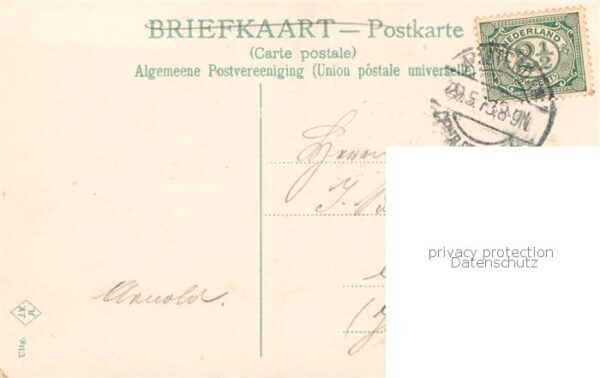 BRIEFKAART — Postkarte
(Carte postale)
Algemeene Postvereeniging (Union pôstale universelle
NEDERLAND
2½
29.5.13.8-9N
Herrn
J.
privacy protection
Datenschutz
Arnold.
J.V.
A.
Uitg.